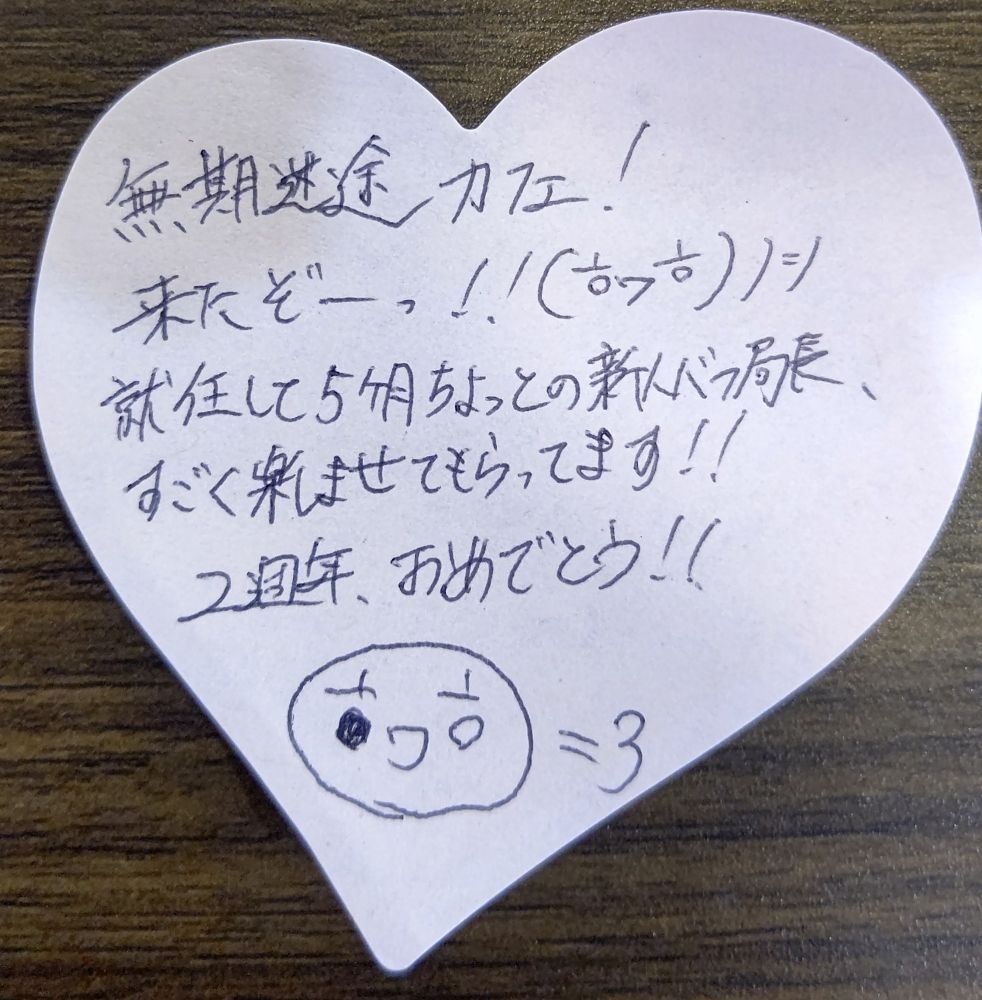 無期迷途カフェ!
来たぞーっ!!(ㅎワㅎ))=)
就任して5ヶ月ちょっとの新人バラ局長、
すごく楽しませてもらってます!!
2週年、おめでとう!!
=3